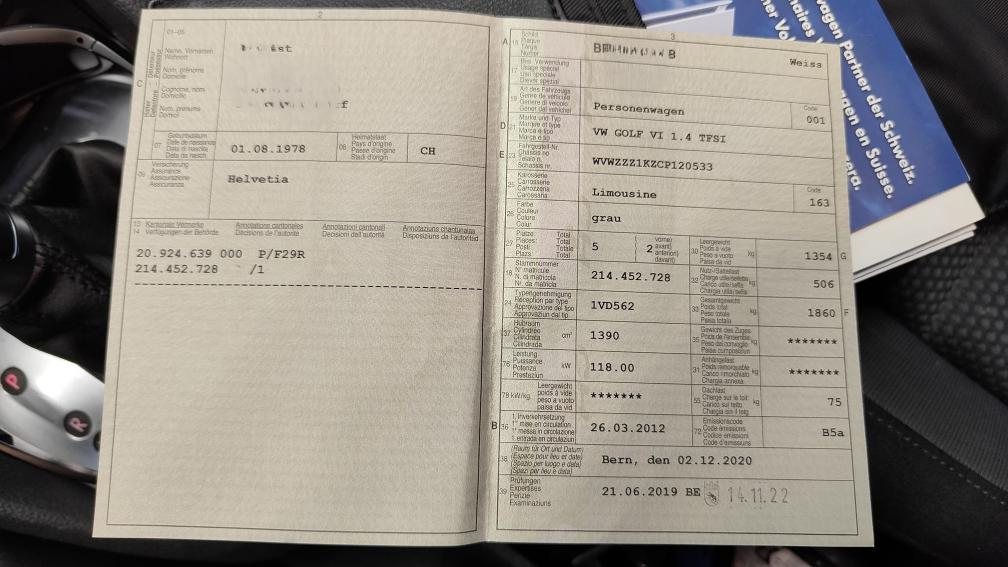 2
01-05
Name, Vornamen
Wohnort
Nom, prénoms
Domicile
Cognome, nomi
Domicilio
Num, prenums
Domicil
C
07
Geburtsdatum
Date de naissance
Data di nascita
Data da nasch.
01.08.1978
08
Heimatstaat
Pays d'origine
Paese d'origine
Stadi d'origin
CH
09
Versicherung
Assurance
Assicurazione
Assicuranza
Helvetia
13
14
Kantonale Vermerke
Verfügungen der Behörde
Annotations cantonales
Décisions de l'autorité
Annotazioni cantonali
Decisioni dell'autorità
Annotaziuns chantunalas
Disposiziuns da l'autoritad
20.924.639 000 P/F29R
214.452.728 /1
3
A
15
Schild
Plaque
Targa
Numer
B
Weiss
17
Bes. Verwendung
Usage spécial
Uso speciale
Diever spezial
19
Art des Fahrzeugs
Genre de véhicule
Genere di veicolo
Gener dal vehichel
Personenwagen
Code
001
D
21
Marke und Typ
Marque et type
Marca e tipo
Marca e tip
VW GOLF VI 1.4 TFSI
E
23
Fahrgestell-Nr.
Châssis no
Telaio n.
Schassis nr.
WVWZZZ1KZCP120533
25
Karosserie
Carrosserie
Carrozzeria
Carossaria
Limousine
Code
163
26
Farbe
Couleur
Colore
Colur
grau
27
Plätze: Total
Places: Total
Posti: Total
Plazs: Total
5
2
vorne)
avant)
anteriori)
davant)
30
Leergewicht
Poids à vide
Peso a vuoto
Paisa da vid
kg
1354
G
18
Stammnummer
N° matricule
N. di matricola
Nr. da matricla
214.452.728
32
Nutz-/Sattellast
Charge utile/sellette
Carico utile/sella
Chargia utila/sella
kg
506
24
Typengenehmigung
Réception par type
Approvazione del tipo
Approvaziun dal tip
1VD562
33
Gesamtgewicht
Poids total
Peso totale
Paisa totala
kg
1860
F
37
Hubraum
Cylindrée
Cilindrata
Cilindrada
cm³
1390
35
Gewicht des Zuges
Poids de l'ensemble
Peso del convoglio
Paisa cumposiziun
kg
*******
76
Leistung
Puissance
Potenza
Prestaziun
kW
118.00
31
Anhängelast
Poids remorquable
Carico rimorchiato
Chargia annexa
kg
*******
78
kW/kg
Leergewicht
poids à vide
peso a vuoto
paisa da vid
*******
55
Dachlast
Charge sur le toit
Carico sul tetto
Chargia sin il tetg
kg
75
B
36
1. Inverkehrsetzung
1re mise en circulation
1a messa in circolazione
1. entrada en circulaziun
26.03.2012
72
Emissionscode
Code émissions
Codice emissioni
Code d'emissiuns
B5a
38
(Raum für Ort und Datum)
(Espace pour lieu et date)
(Spazio per luogo e data)
(Spazi per lieu e data)
Bern, den 02.12.2020
39
Prüfungen
Expertises
Perizie
Examinaziuns
21.06.2019 BE
14.11.22
wagen Partner der Schweiz.
gen en Suisse.
P
R